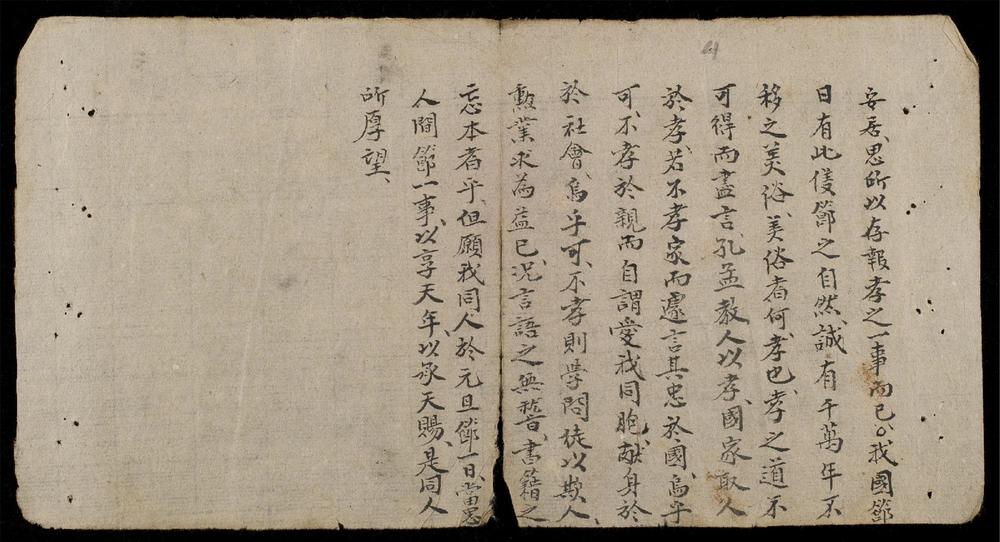 安居思所以存報孝之一事而已。我國節
日有此侫節之自然、誠有千萬年不
移之美俗、美俗者何、孝也、孝之道不
可得而盡言、孔孟教人以孝、國家取人
於孝、若不孝家而遽言其忠於國、烏乎
可、不孝於親而自謂愛我同胞、献身於
於社會、烏乎可、不孝則學問徒以欺人、
勲業求為益已、况言語之無稽、書籍之
忘本者乎、但願我同人於元旦節一日、當思
人間節一事、以享天年、以承天賜、是同人
所厚望、